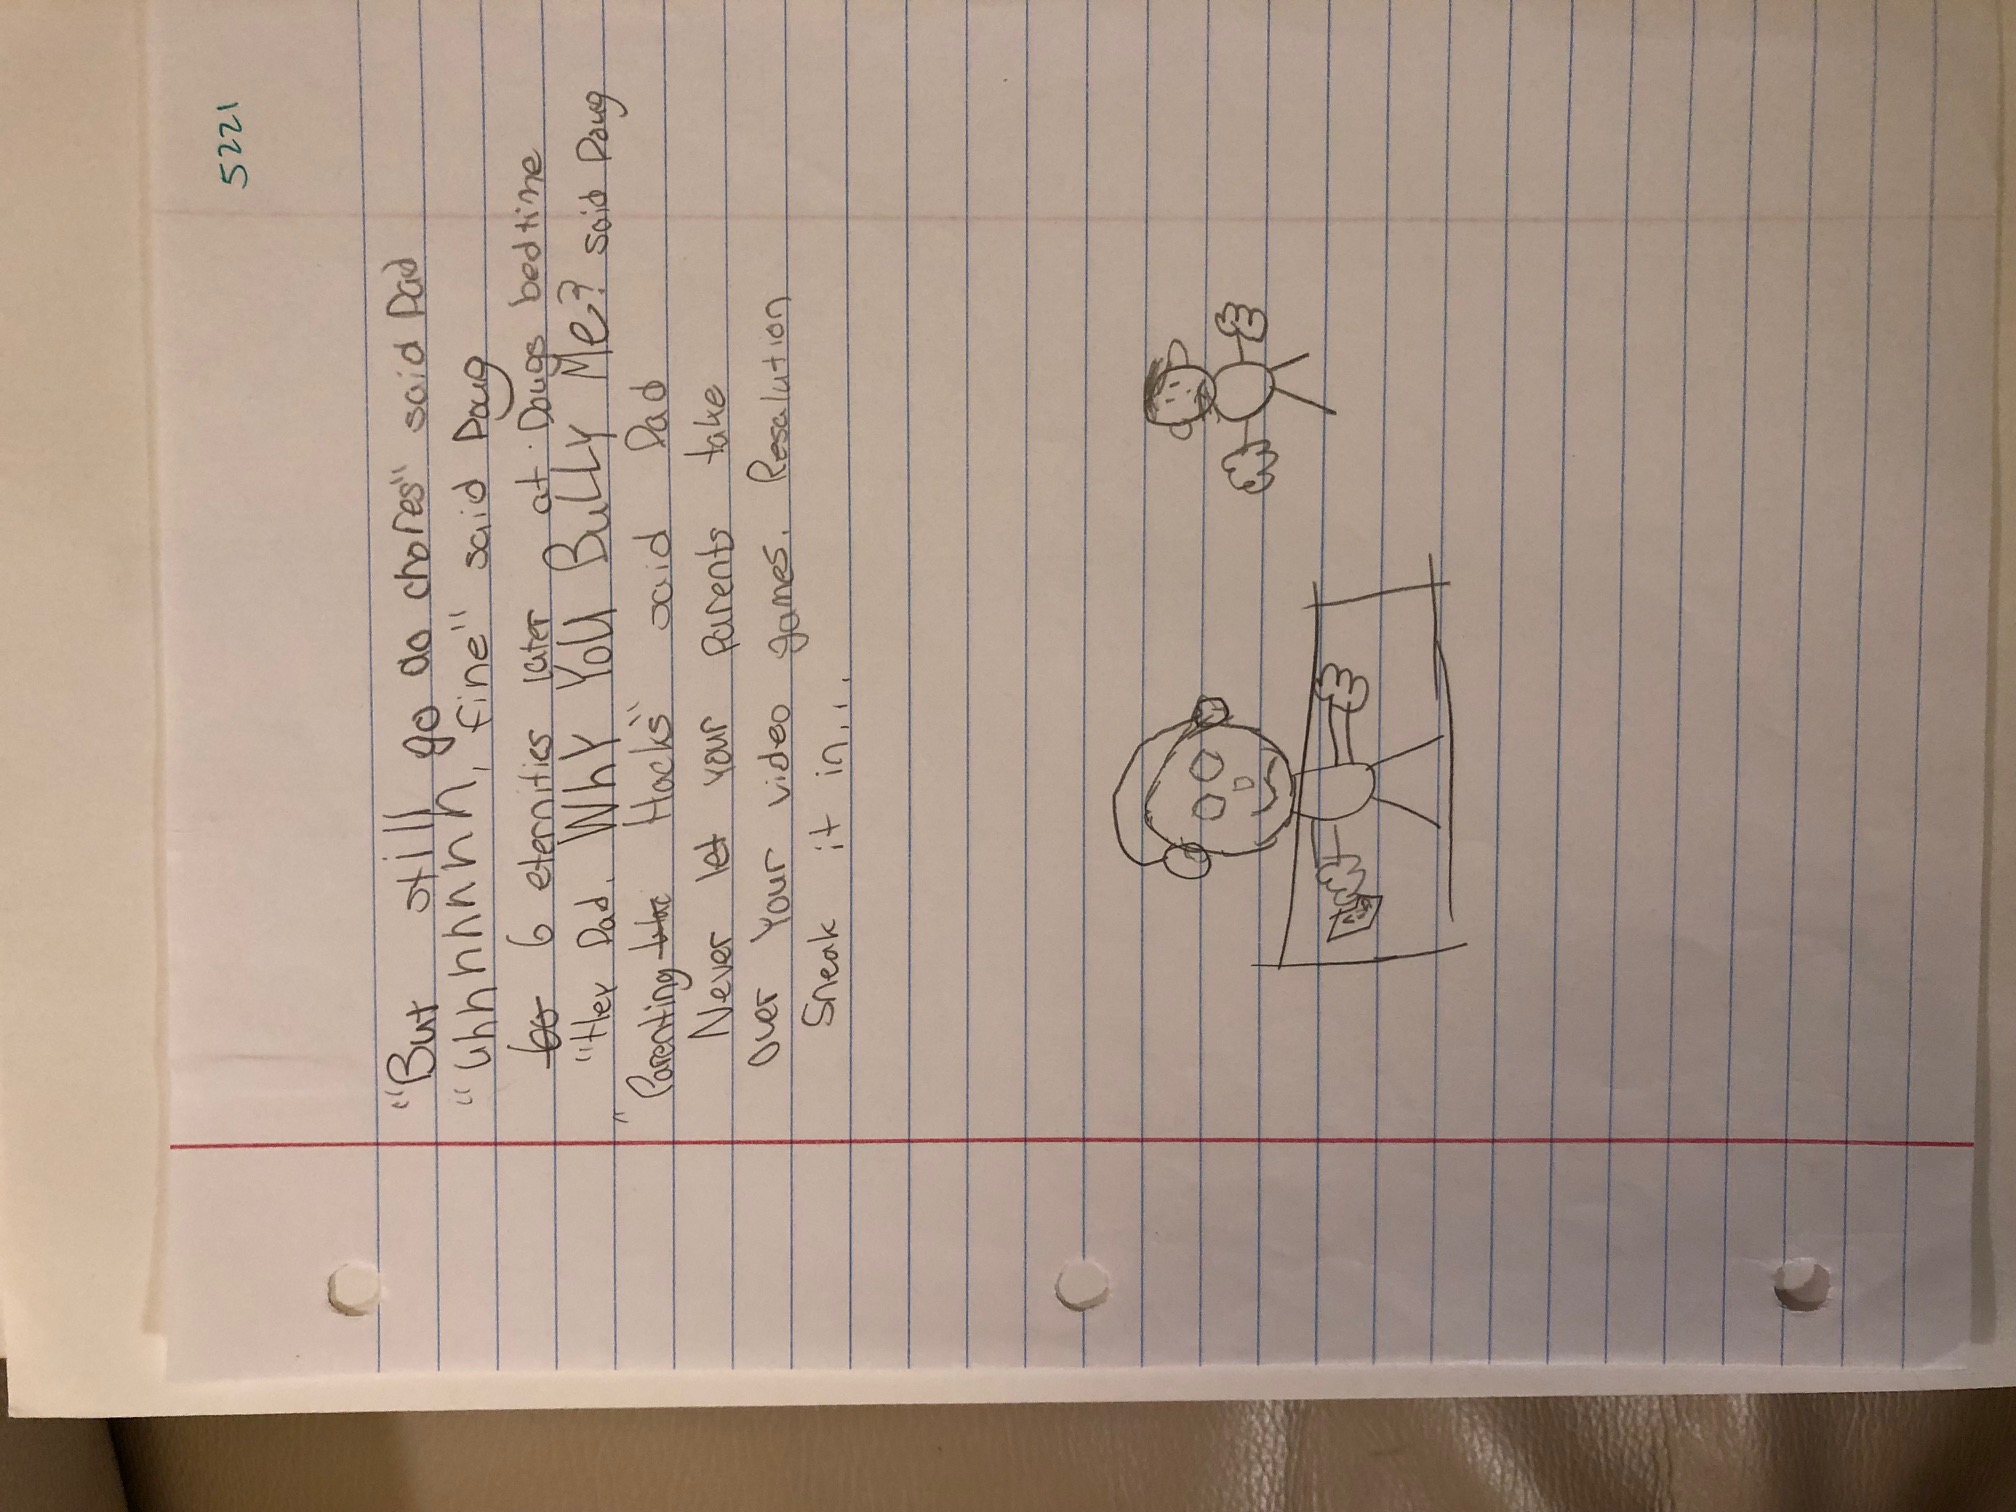 5221
"But still go do chores" said Dad
"Uhhhhhhhh, fine" said Doug
60 6 eternities later at Dougs bedtime
"Hey Dad. WhY YoU BuLLY Me? said Doug
"Parenting Hacks" said Dad
Never let your parents take
over your video games. Resalution
Sneak it in...